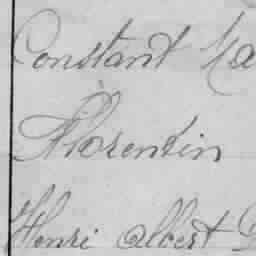 Constant
Florentin
Henri Albert